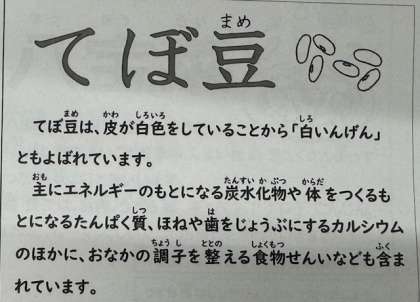 てぼ豆
てぼ豆は、皮が白色をしていることから「白いんげん」
ともよばれています。
主にエネルギーのもとになる炭水化物や体をつくるも
とになるたんぱく質、ほねや歯をじょうぶにするカルシウム
のほかに、おなかの調子を整える食物せんいなども含ま
れています。